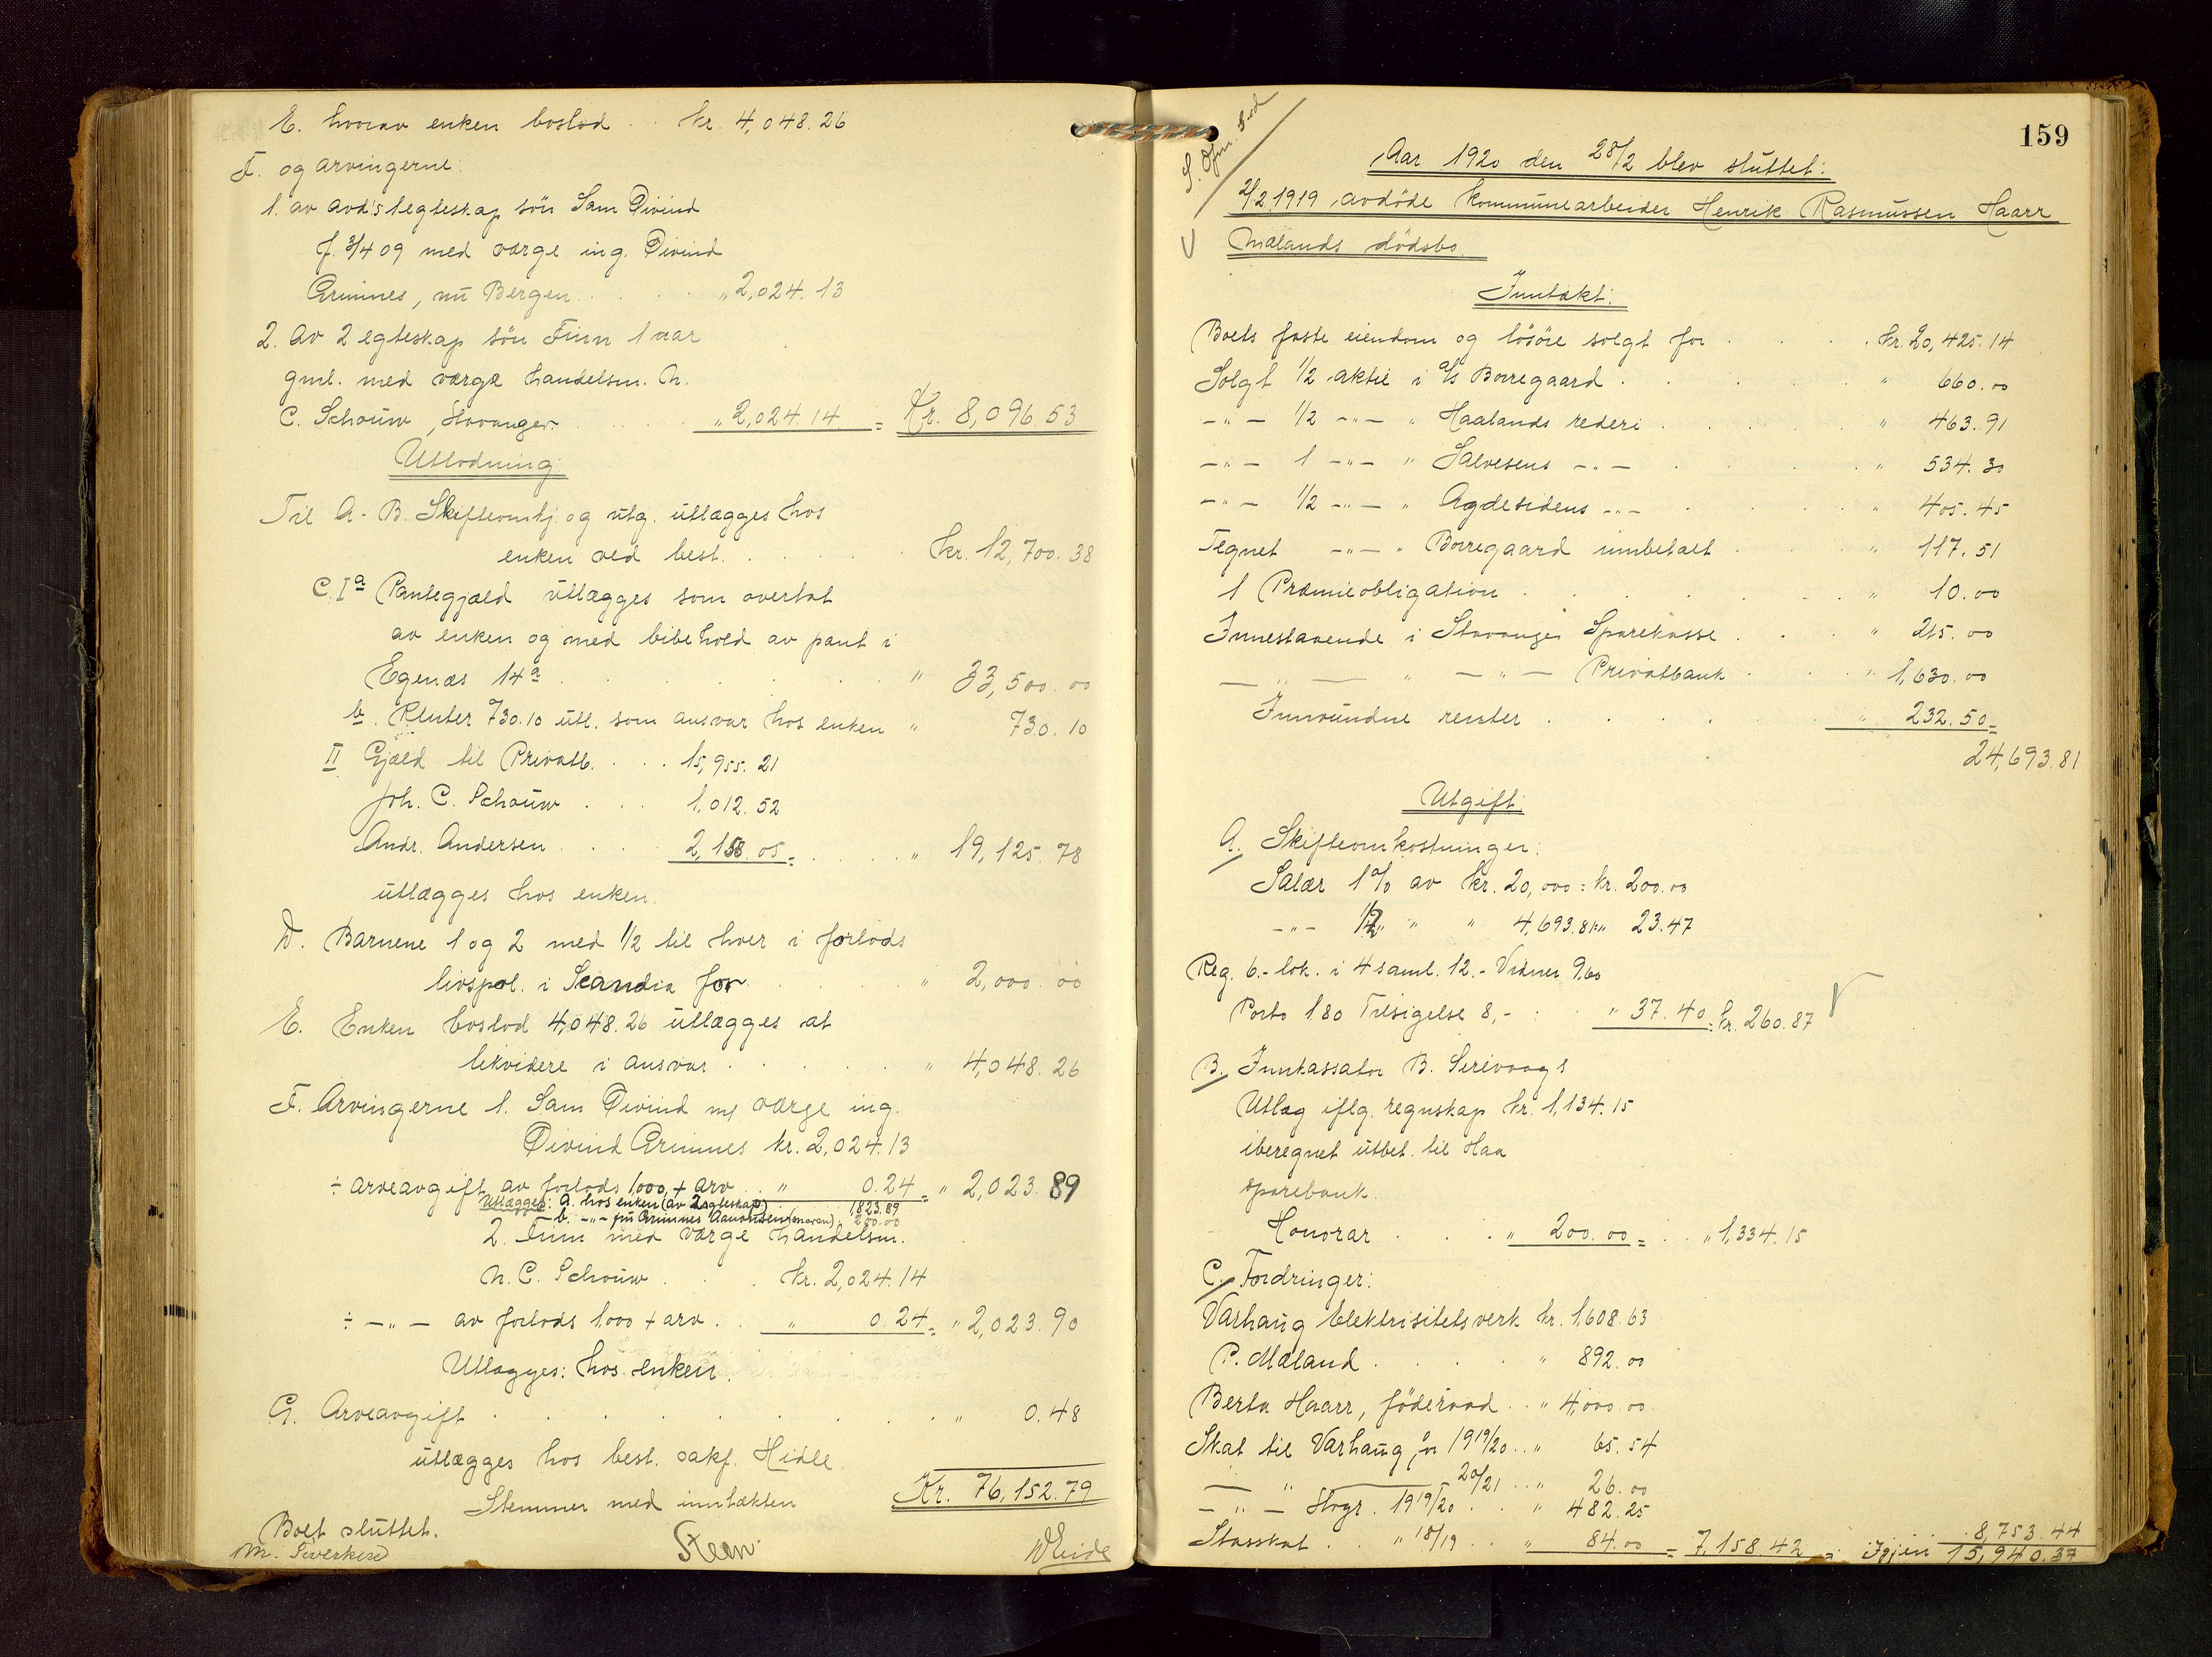 E. hvorav enken boslod . . kr. 4,048.26
F. og arvingerne:
1. av avd's 1 egteskap sön Sam Öivind
f. 3/4 09 med værge ing. Öivind
Grimnes, nu Bergen . . . . " 2,024.13
2. Av 2 egteskap sön Finn 1 aar
gml. med værge handelsm. N.
C. Schouw, Stavanger . . . . " 2,024.14 = Kr. 8,096.53
Utlodning
Til A - B. Skifteomk. og utg. utlægges hos
enken ved best. . . . . kr. 12,700.38
C. I a Pantegjæld utlægges som overtat
av enken og med bibehold av pant i
Egenæs 14a . . . . . " 33,500.00
b. Renter 730.10 utl. som ansvar hos enken " 730.10
II Gjæld til Privatb. . . . 15,955.21
Joh. C. Schouw . . . 1,012.52
Andr. Andersen . . . 2,158.05 = . . . " 19,125.78
utlægges hos enken.
D. Barnene 1 og 2 med 1/2 til hver i forlods
livspol. i Scandia for . . . . " 2,000.00
E. Enken boslod 4,048.26 utlægges at
likvidere i ansvar . . . . . " 4,048.26
F. Arvingerne 1. Sam Öivind m/ værge ing.
Öivind Grimnes kr. 2,024.13
÷ arveavgift av forlods 1,000 + arv . . " 0.24 = " 2,023.89
Utlægges: a. hos enken (av 2 egteskap) 1823.89
b. -"- fru Grimnes (moren) 200.00
2. Finn med værge handelsm.
N. C. Schouw . . . kr. 2,024.14
÷ -"- av forlods 1000 + arv . . " 0.24 = " 2,023.90
Utlægges: hos enken.
G. Arveavgift . . . . . . . . " 0.48
utlægges hos best. sakf. Hidle.
Stemmer med inntækten Kr. 76,152.79
Boet sluttet.
Steen
159
Aar 1920 den 28/2 blev sluttet:
2/2 1919 avdöde kommunearbeider Henrik Rasmussen Haarr
Mælands dödsbo.
Inntækt:
Boets faste eiendom og lösöre solgt for . . . . kr. 20,425.14
Solgt 1/2 aktie i A/S Borregaard . . . . . " 660.00
-"- 1/2 -"- " Haalands rederi . . . . . " 463.91
-"- 1 -"- " Salvesens -"- . . . . " 534.30
-"- 1/2 -"- " Agdesidens -"- . . . . " 405.45
Tegnet -"- " Borregaard innbetalt . . . " 117.51
1 Præmieobligation . . . . . . . " 10.00
Innestaaende i Stavanger Sparekasse . . . " 215.00
-"- " -"- Privatbank . . . " 1,630.00
Innvundne renter . . . . . " 232.50 =
24,693.81
Utgift:
A. Skifteomkostninger:
Salær 1% av kr. 20,000 = kr. 200.00
-"- 1/2 " " " 4,693.81 = " 23.47
Reg. 6.- lok. i 4 saml. 12.- Vidner 9.60
Porto 1.80 Tilsigelse 8,- . . " 37.40 = kr. 260.87
B. Innkassator B. Sirevaags
Utlæg iflg. regnskap kr. 1,134.15
iberegnet utbet. til Haa
sparebank.
Honorar . . . " 200.00 = . . " 1,334.15
C. Fordringer:
Varhaug Elektrisitetsverk kr. 1,608.63
P. Mæland . . . . " 892.00
Berta Haarr, föderaad . . " 4,000.00
Skat til Varhaug for 1919/20 . . " 65.54
-"- 20/21 . . " 26.00
-"- Stvgr. 1919/20 . . " 482.25
Statsskat . . " 18/19 . . " 84.00 = 7,158.42 = . 8,753.44
Igjen 15,940.37